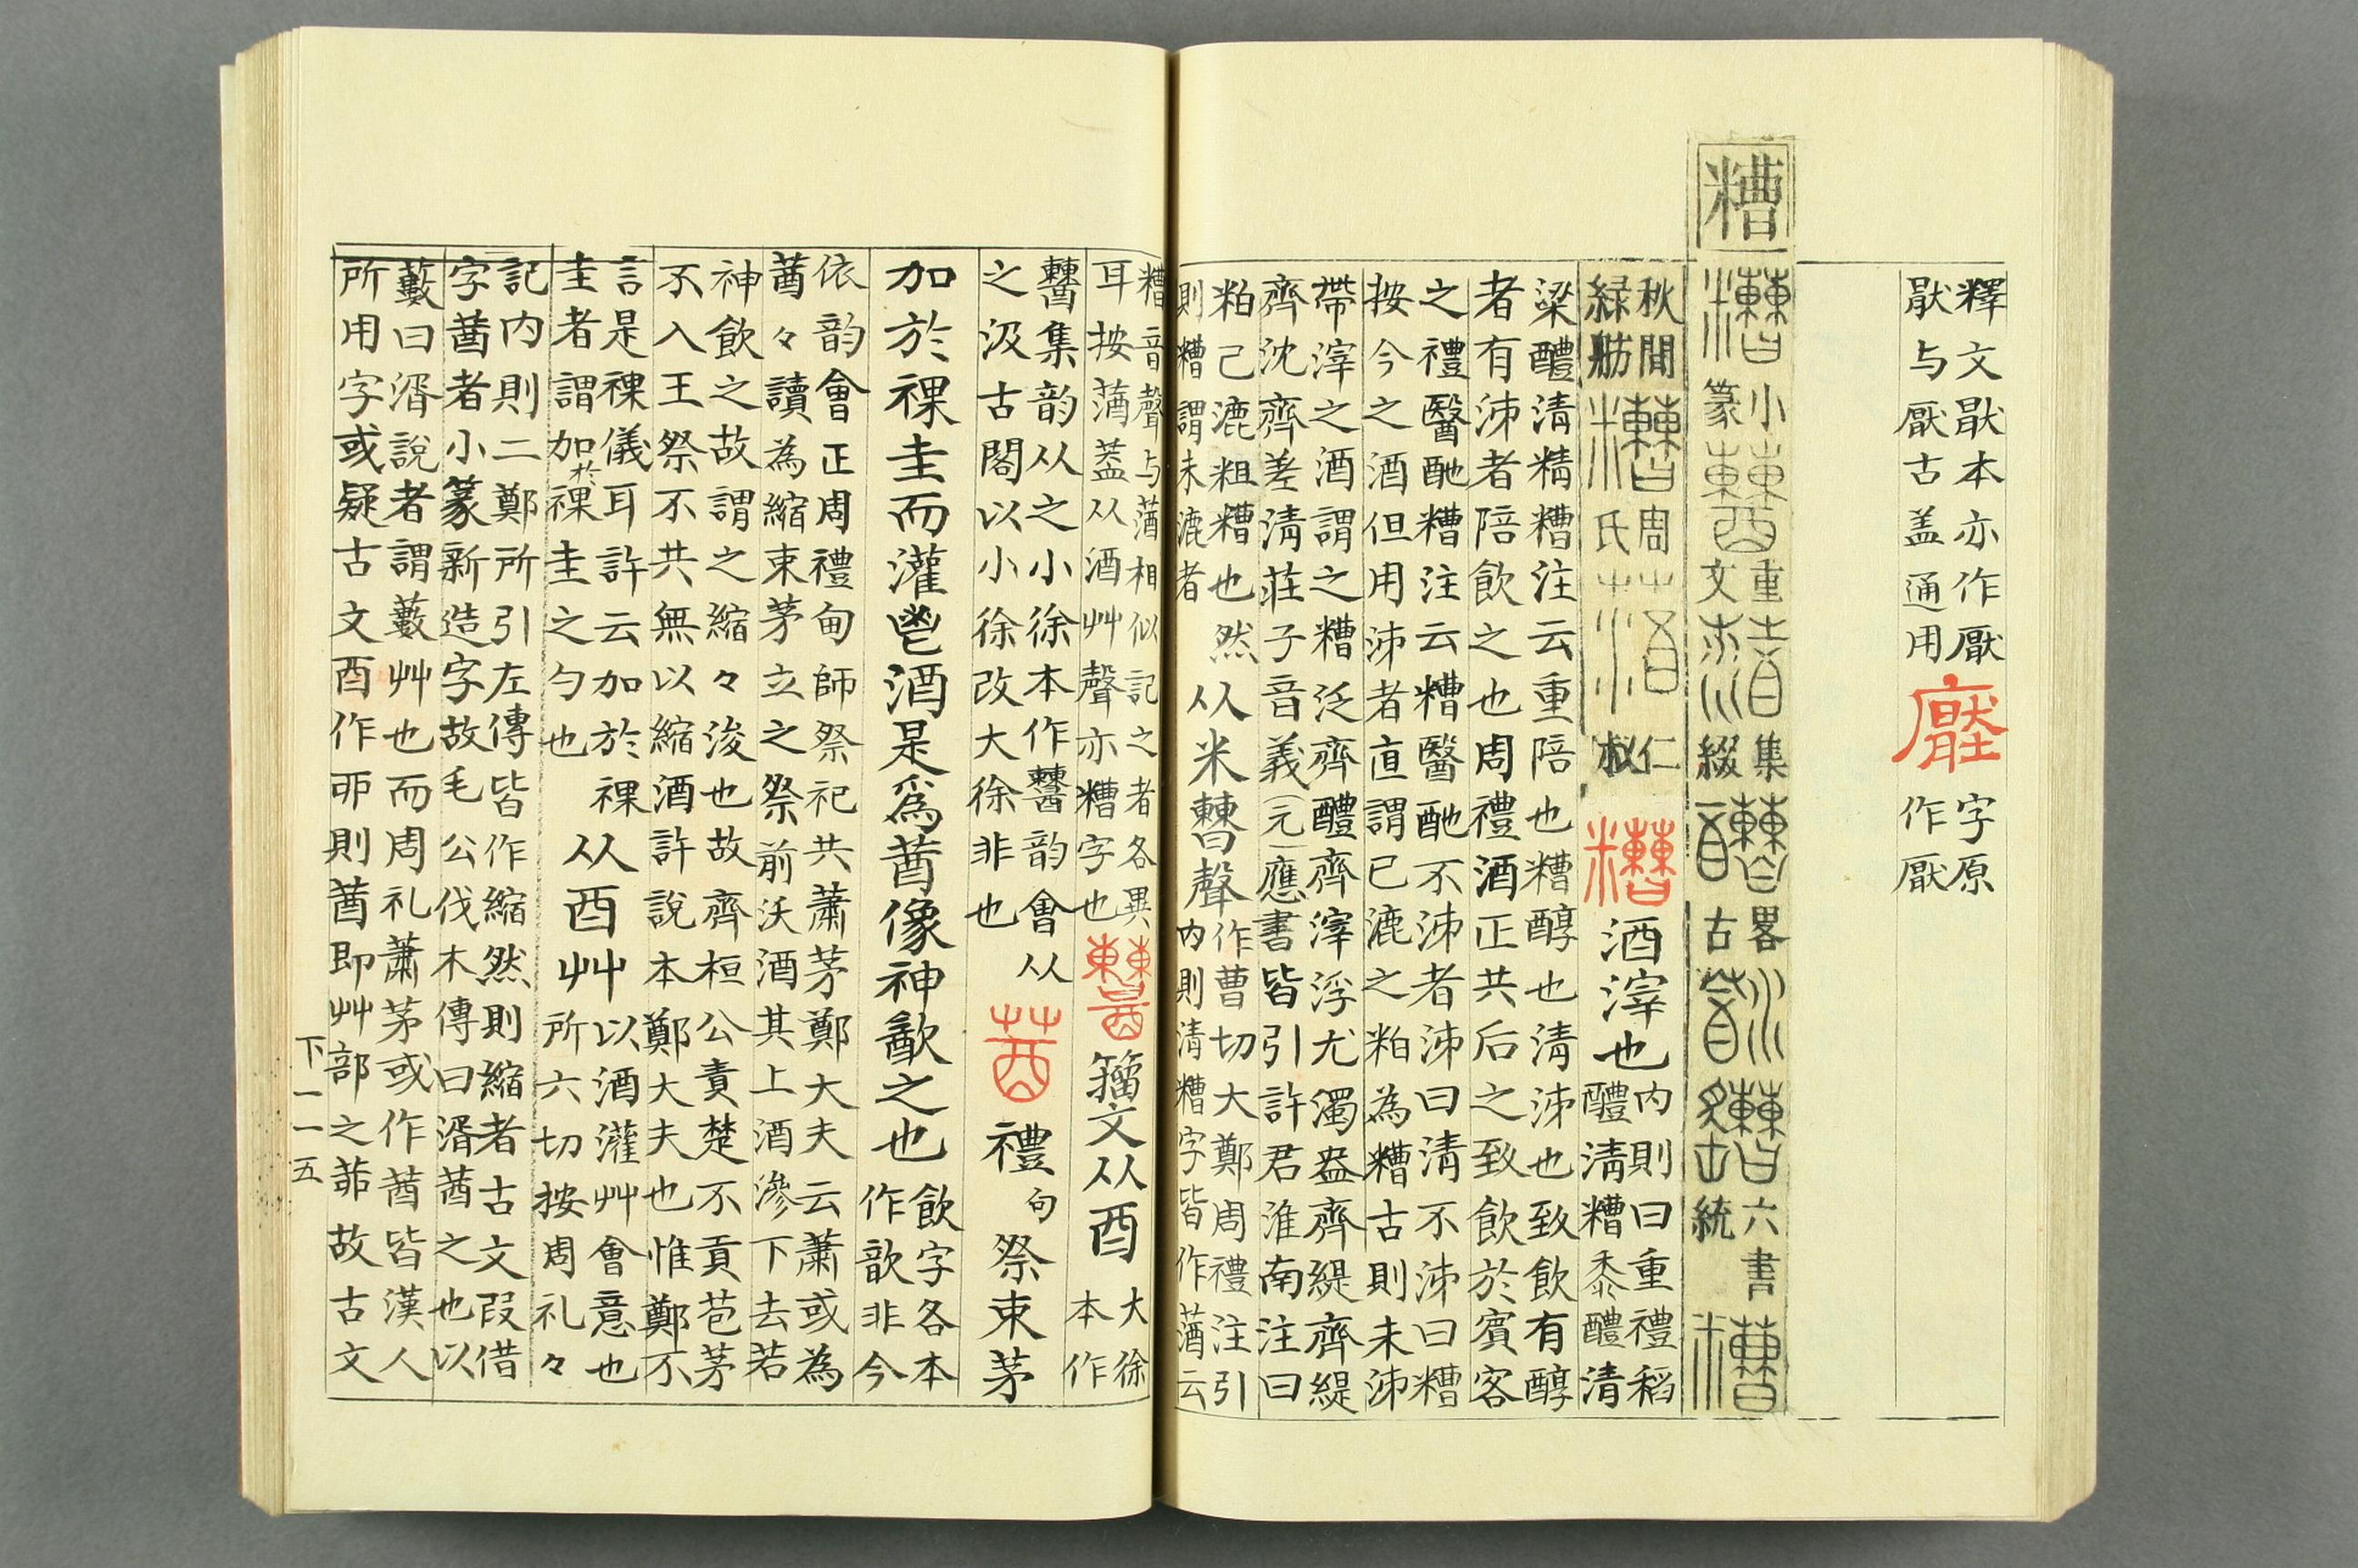 釋文猒本亦作厭
猒与厭古盖通用
字原
作厭
糟
小
篆
重
文
集
綴
古
畧
六書
統
秋閒
緑舫
周
氏
仁
椒
酒滓也
内則曰重禮稻
醴清糟黍醴清
梁醴清精糟注云重陪也糟醇也清泲也致飲有醇
者有泲者陪飲之也周禮酒正共后之致飲於賓客
之禮醫酏糟注云糟醫酏不泲者泲曰清不泲曰糟
按今之酒但用泲者直謂已漉之粕為糟古則未泲
帶滓之酒謂之糟泛齊醴齊滓浮尤濁盎齊緹齊緹
齊沈齊差清莊子音義元應書皆引許君淮南注曰
粕己漉粗糟也然
則糟謂未漉者
从米𣍘聲
作曹切大鄭周禮注引
内則清糟字皆作蕕云
糟音聲与蕕相似記之者各異
耳按蕕葢从酒艸聲亦糟字也
籒文从酉
大徐
本作
醩集韵从之小徐本作醩韵會从
之汲古閣以小徐改大徐非也
禮
句
祭束茅
加於祼圭而灌鬯酒是爲莤像神歆之也
飲字各本
作歆非今
依韵會正周禮甸師祭祀共蕭茅鄭大夫云蕭或為
莤々讀為縮束茅立之祭前沃酒其上酒滲下去若
神飲之故謂之縮々浚也故齊桓公責楚不貢苞茅
不入王祭不共無以縮酒許說本鄭大夫也惟鄭不
言是祼儀耳許云加於祼
圭者謂加於祼圭之勺也
从酉艸
以酒灌艸會意也
所六切按周礼々
記内則二鄭所引左傳皆作縮然則縮者古文叚借
字莤者小篆新造字故毛公伐木傳曰湑莤之也以
藪曰湑說者謂藪艸也而周礼蕭茅或作莤皆漢人
所用字或疑古文酉作丣則莤即艸部之茆故古文
下一一五